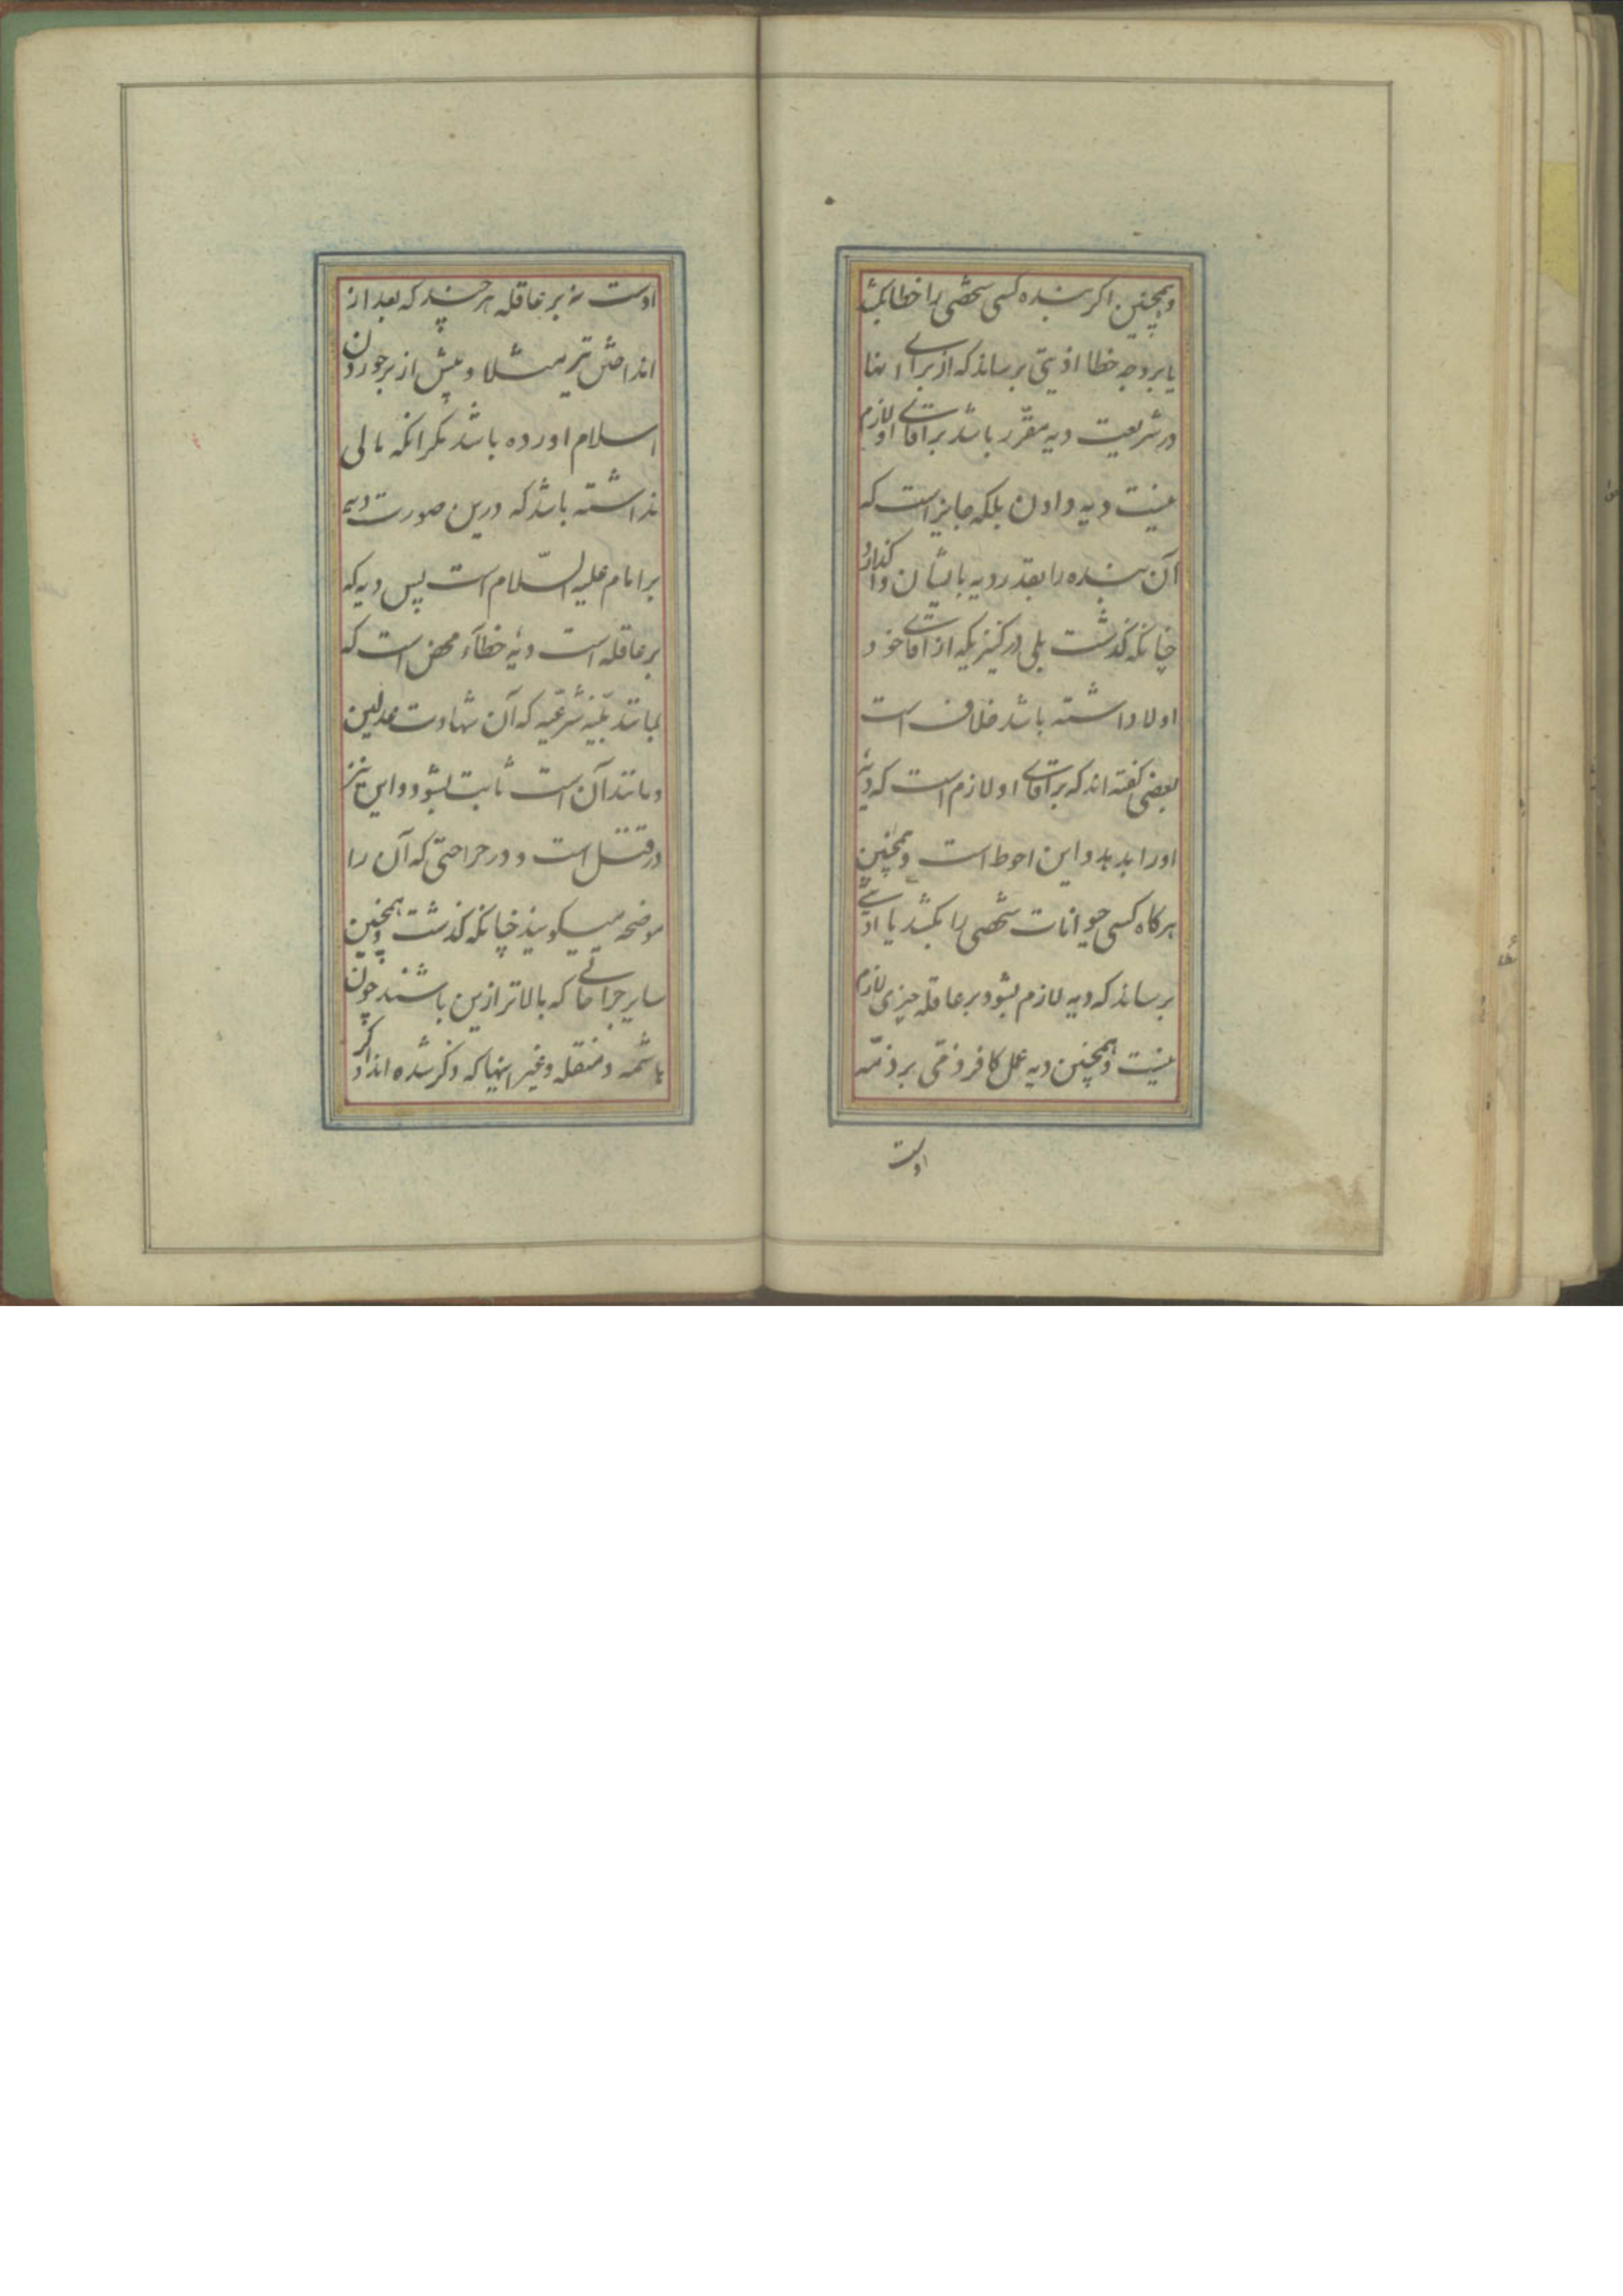 وهمچنین اکر بنده کسی شخصی را خطا بکشد
یا بر وجه خطا اذیتی برساند که از برای انها
در شریعت دیه مقرّر باشد بر اقای او لازم
نیست دیه دادن بلکه جایز است که
آن بنده را بقدر دیه بایشان واکذارد
چنانکه کذشت بلی در کنیزیکه از اقای خود
اولاد داشته باشد خلاف است
بعضی کفته اند که بر اقای او لازم است که دیهٔ
او را بدهد و این احوط است وهمچنین
هرکاه کسی حیوانات شخصی را بکشد یا اذیتی
برساند که دیه لازم بشود بر عاقله چیزی لازم
نیست وهمچنین دیه عمل کافر ذمّی بر ذمّه
اوست
اوست نه بر عاقله هرچند که بعد از
انداختن تیر مثلا و پیش از برخوردن
اسلام اورده باشد مکر انکه مالی
نداشته باشد که درین صورت دیه
بر امام علیه السّلام است پس دیه که
بر عاقله است دیهٔ خطآء محض است که
بمانند بیّنه شرعیّه که آن شهادت عدلین
و مانند آن است ثابت بشود و این نیز
در قتل است و در جراحتی که آن را
موضحه میکویند چنانکه کذشت وهمچنین
سایر جراحاتی که بالاتر ازین باشند چون
هاشمه و منقله و غیر اینها که ذکر شده اند و اکر